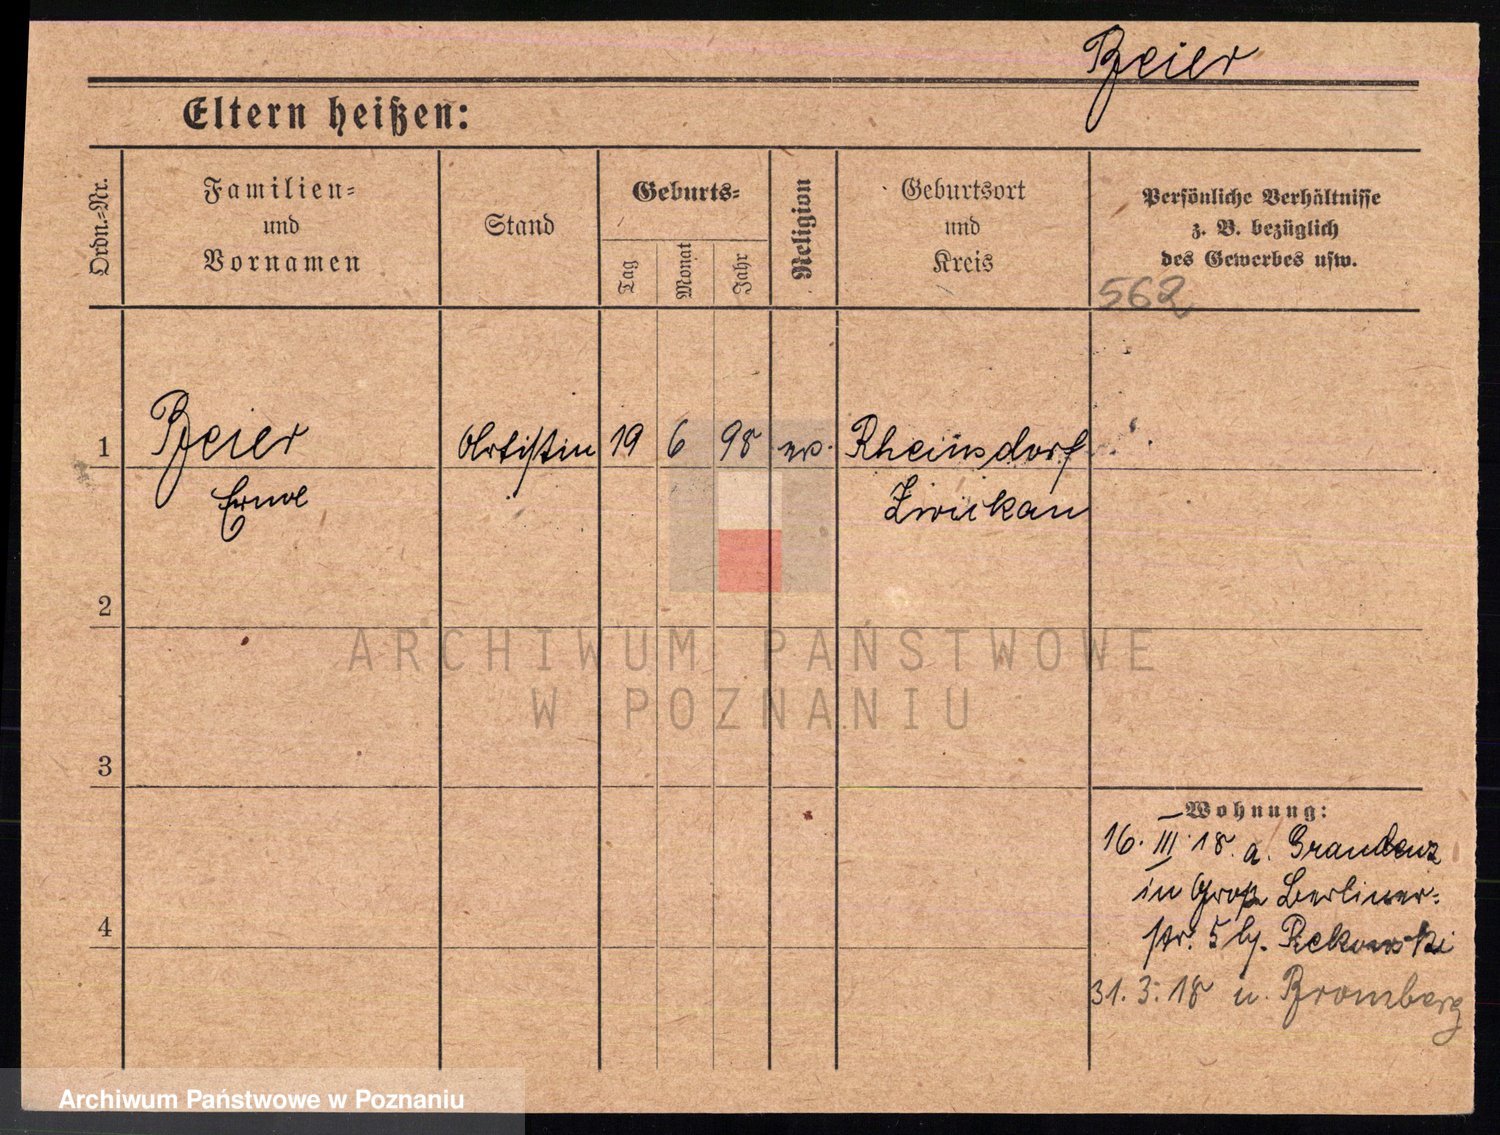 Beier
Eltern heißen:
Ordn.-Nr.
Familien-
und
Vornamen
Stand
Geburts-
Tag
Monat
Jahr
Religion
Geburtsort
und
Kreis
Persönliche Verhältnisse
z. B. bezüglich
des Gewerbes usw.
562
1
Beier
Artistin
19
6
98
ev.
Rheinsdorf
Erna
Zwickau
2
ARCHIWUM PAŃSTWOWE
W POZNANIU
3
Wohnung:
16. III. 18. a. Graudenz
in Groß Berliner-
str. 5 b/.
4
31. 3. 18 n. Bromberg
Archiwum Państwowe w Poznaniu